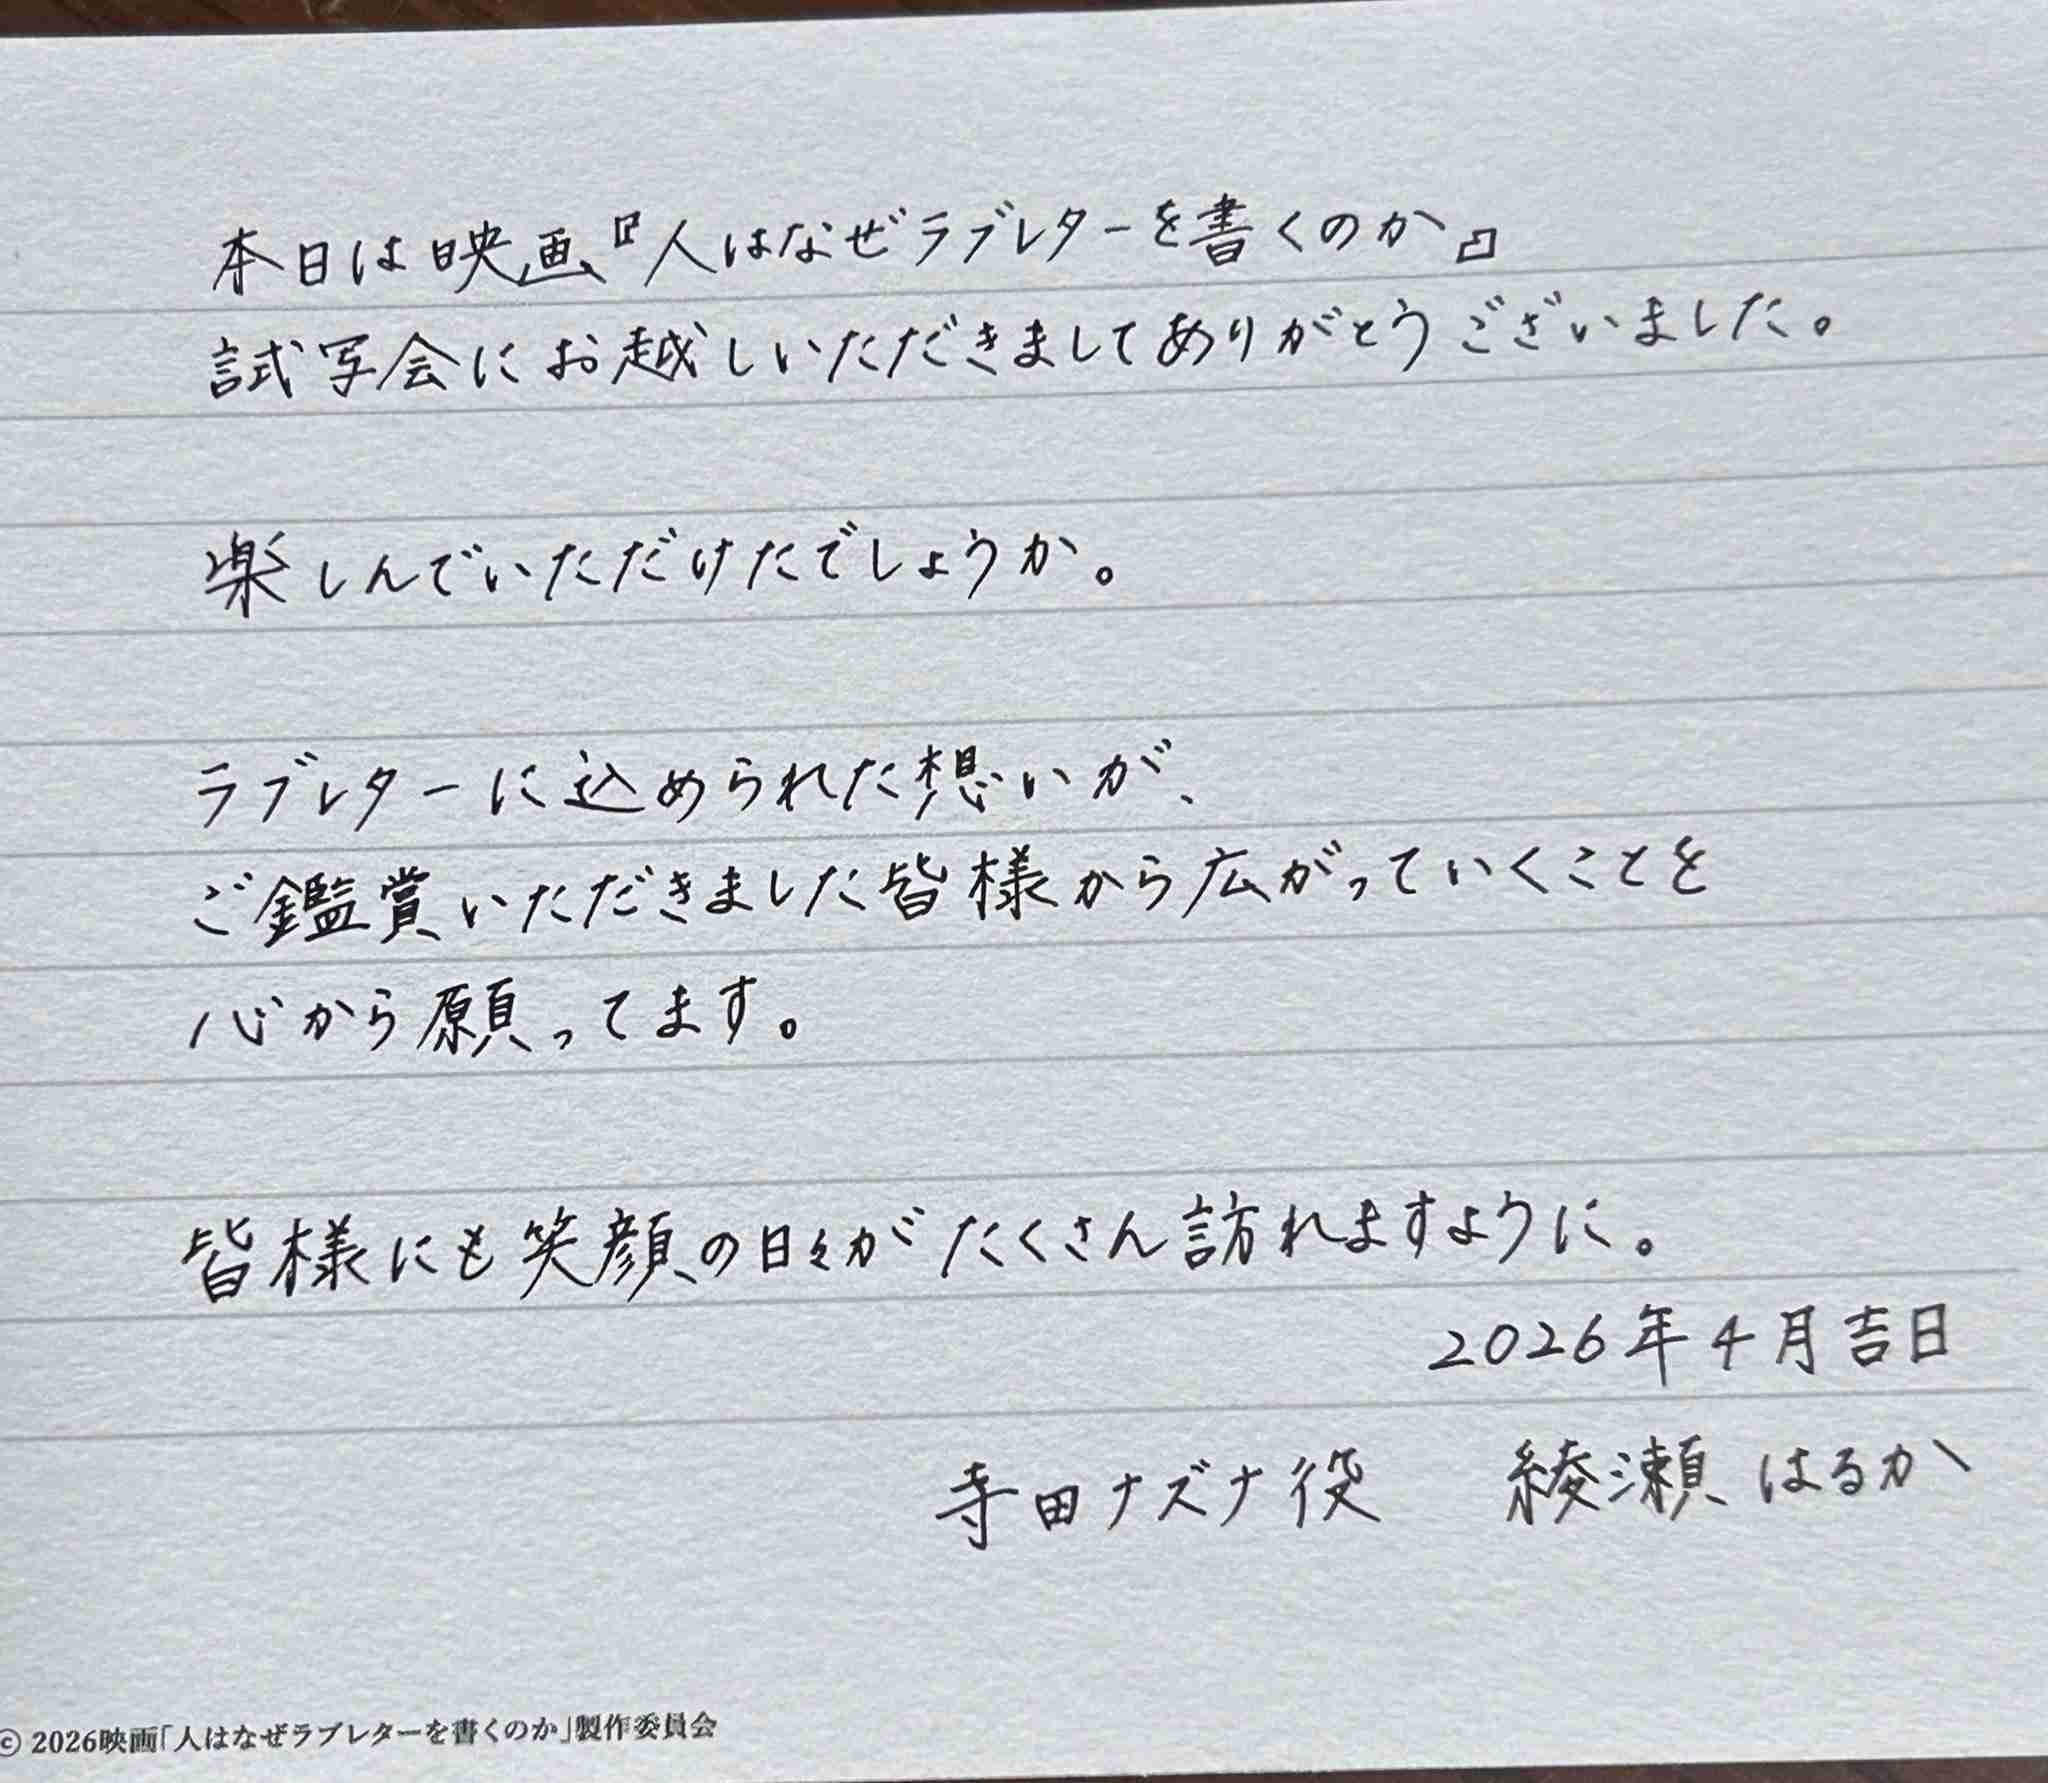 本日は映画『人はなぜラブレターを書くのか』
試写会にお越しいただきましてありがとうございました。
楽しんでいただけたでしょうか。
ラブレターに込められた想いが、
ご鑑賞いただきました皆様から広がっていくことを
心から願ってます。
皆様にも笑顔の日々がたくさん訪れますように。
2026年4月吉日
寺田ナズナ役 綾瀬はるか
© 2026映画「人はなぜラブレターを書くのか」製作委員会